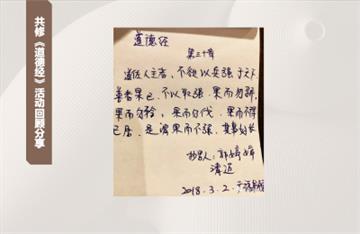 共修《道德经》活动回顾分享
道德经
第三十章
道佐人主者，不欲以兵强于天下
善者果已，不以取强，果而勿骄，
果而勿矜，果而勿伐，果而不得
已居，是谓果而不强，其事好长
抄写人：郭婷婷
清迈
2018.3.2.于